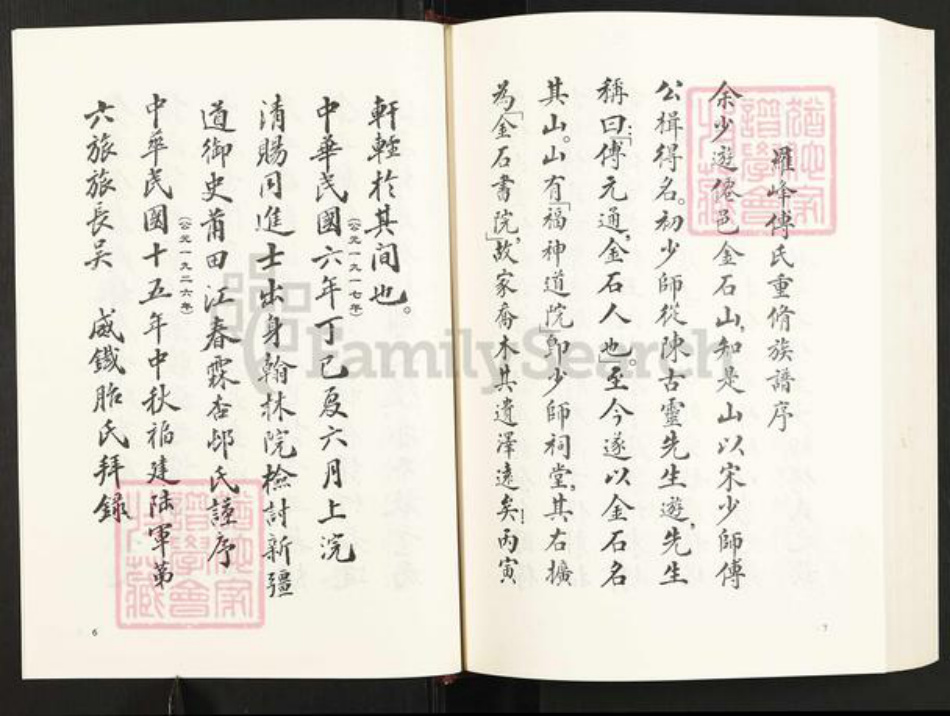 軒輊於其間也。
中華民國六年丁巳夏六月上浣
(公元一九一七年)
清賜同進士出身翰林院檢討新疆
道御史莆田江春霖杏邨氏謹序
中華民國十五年中秋福建陸軍第
(公元一九二六年)
六旅旅長吳 威鐵胎氏拜錄
6
羅峰傅氏重脩族譜序
余少遊僊邑金石山,知是山以宋少師傅
公楫得名。初少師從陳古靈先生遊,先生
稱曰:「傅元通,金石人也」。至今遂以金石名
其山。山有「福神道院」即少師祠堂,其右擴
為「金石書院」,故家喬木其遺澤遠矣!丙寅
7
猶他家
譜學會
收藏
猶他家
譜學會
收藏
FamilySearch